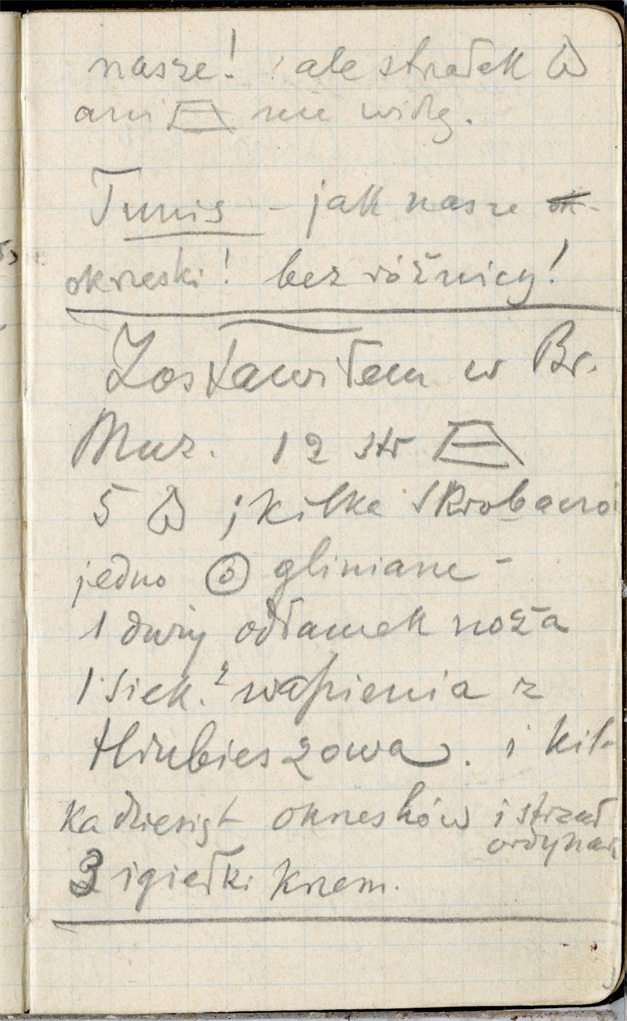 nasze! ale strzałek
ani nie widzę.
Tunis - jak nasze ok-
okrzeski! bez różnicy!
Zostawiłem w Br.
Muz. 12 str
5 ; kilka skrobaczó
jedno gliniane -
1 duży odłamek noża
1 siek.? wapienia z
Hrubieszowa. i kil-
kadziesiąt okresków i strzał
ordynar
3 igiełki krzem.